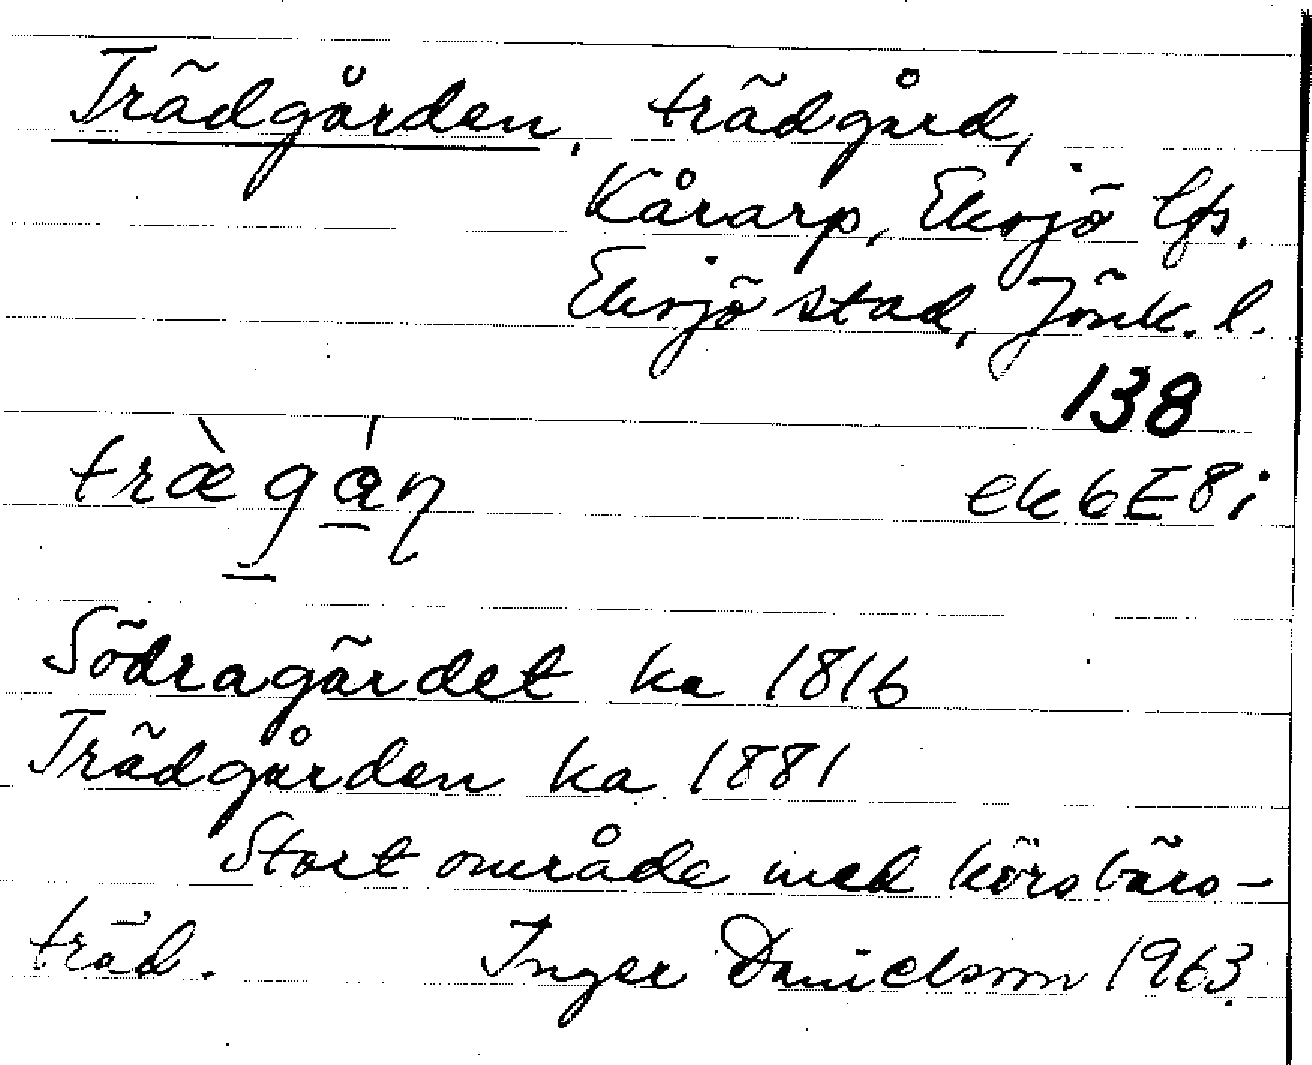 Trädgården, trädgård,
Kårarp, Eksjö lfs.
Eksjö stad, Jönk. l.
138
træ̀gán
ek 6E8i
Södragärdet ka 1816
Trädgården ka 1881
Stort område med körsbärs-
träd. Inger Danielsson 1963